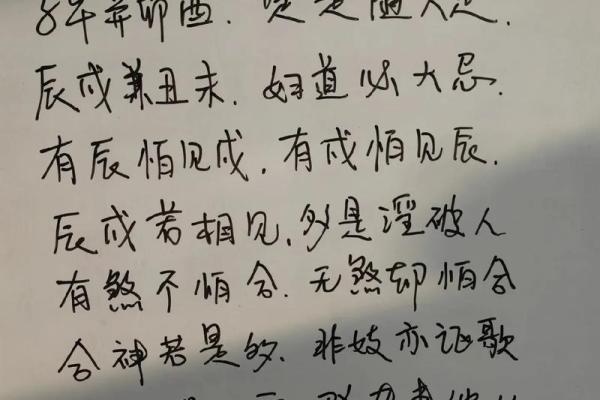 子午并卯酉.定是随人走.
辰戌兼丑未.妇道必大忌.
有辰怕见戌.有戌怕见辰.
辰戌若相见.多是淫破人
有煞不怕合.无煞却怕合
合神若是多.非妓亦讴歌